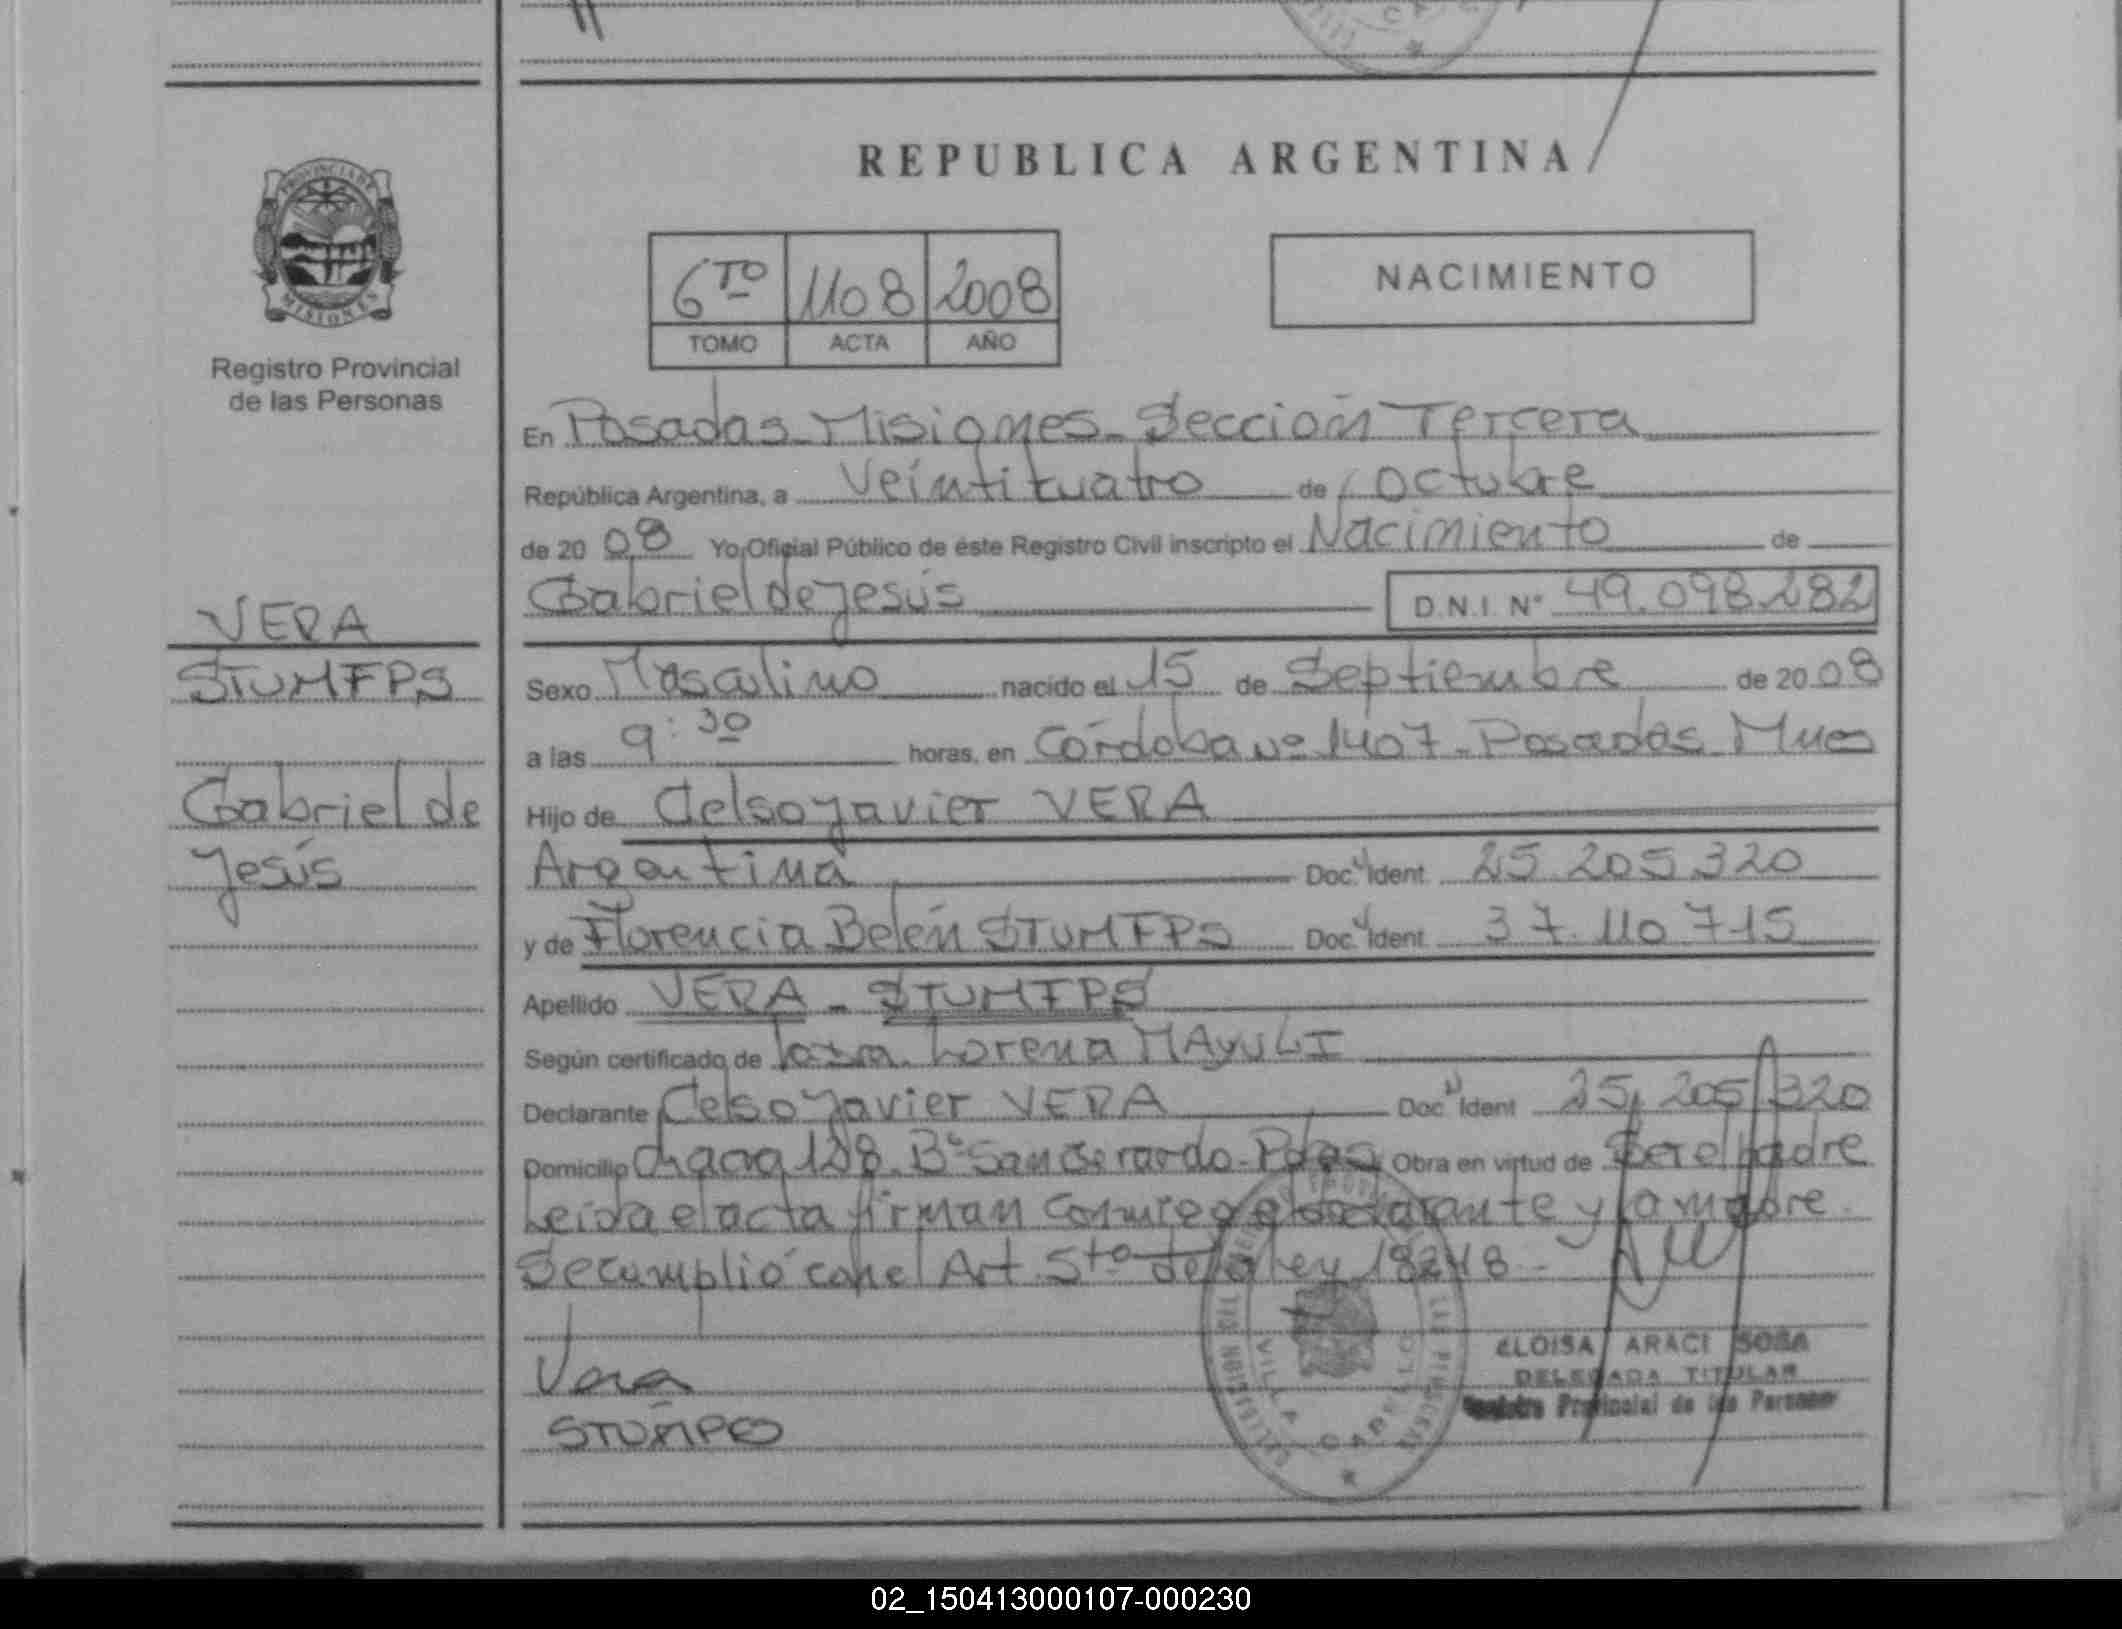 REPUBLICA ARGENTINA
PROVINCIA DE
MISIONES
Registro Provincial
de las Personas
6TO 1108 2008
TOMO ACTA AÑO
NACIMIENTO
En Posadas Misiones Sección Tercera
República Argentina, a Veinticuatro de Octubre
de 20 08 Yo, Oficial Público de éste Registro Civil inscripto el Nacimiento de
Gabriel de Jesús D.N.I. Nº 49.098.282
VERA
STUMFPS
Gabriel de
Jesús
Sexo Masculino nacido el 15 de Septiembre de 20 08
a las 9:30 horas, en Córdoba Nº 1407 - Posadas Mnes
Hijo de Celso Javier VERA
Argentina Doc. Ident. 25.205.320
y de Florencia Belén STUMFPS Doc. Ident. 37.110.715
Apellido VERA - STUMFPS
Según certificado de Lorena MAYULI
Declarante Celso Javier VERA Doc. Ident 25.205.320
Domicilio Chacra 128 Bº San Gerardo - Pdas Obra en virtud de Ser el padre
Leída el acta firman conmigo el declarante y la madre.
Se cumplió con el Art 5to de la Ley 18248 -
Vera
STUMPS
VILLA CABELLO
ELOISA ARACI SOSA
DELEGADA TITULAR
Registro Provincial de las Personas
02_150413000107-000230